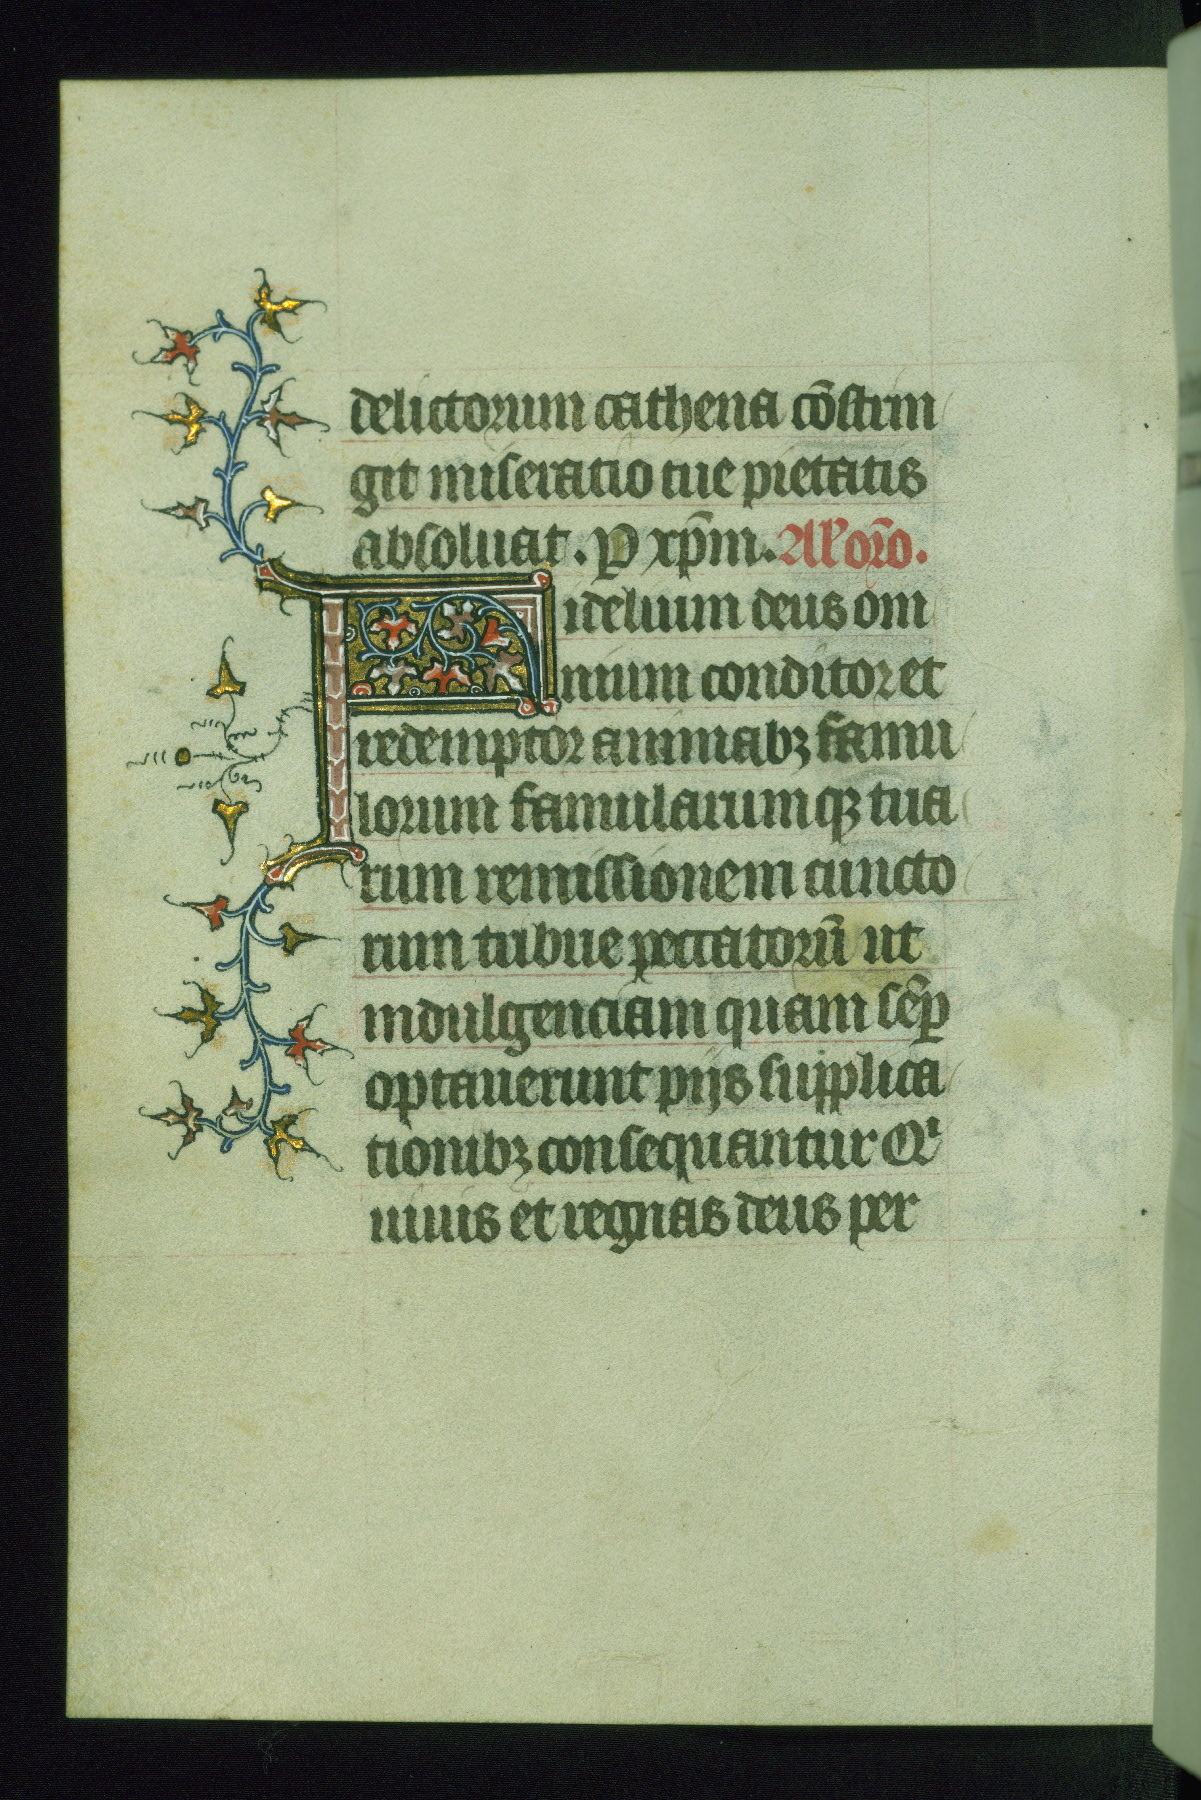 delictorum cathena cōstrin
git miseratio tue pietatis
absoluat. P xp̄m. Al' or̄o.
Fidelium deus om
nium conditor et
redemptor animabꝫ famu
lorum famularumqꝫ tua
rum remissionem cuncto
rum tribue peccatorū ut
indulgenciam quam sēp
optauerunt pijs supplica
tionibꝫ consequantur Qͥ
uiuis et regnas deus per